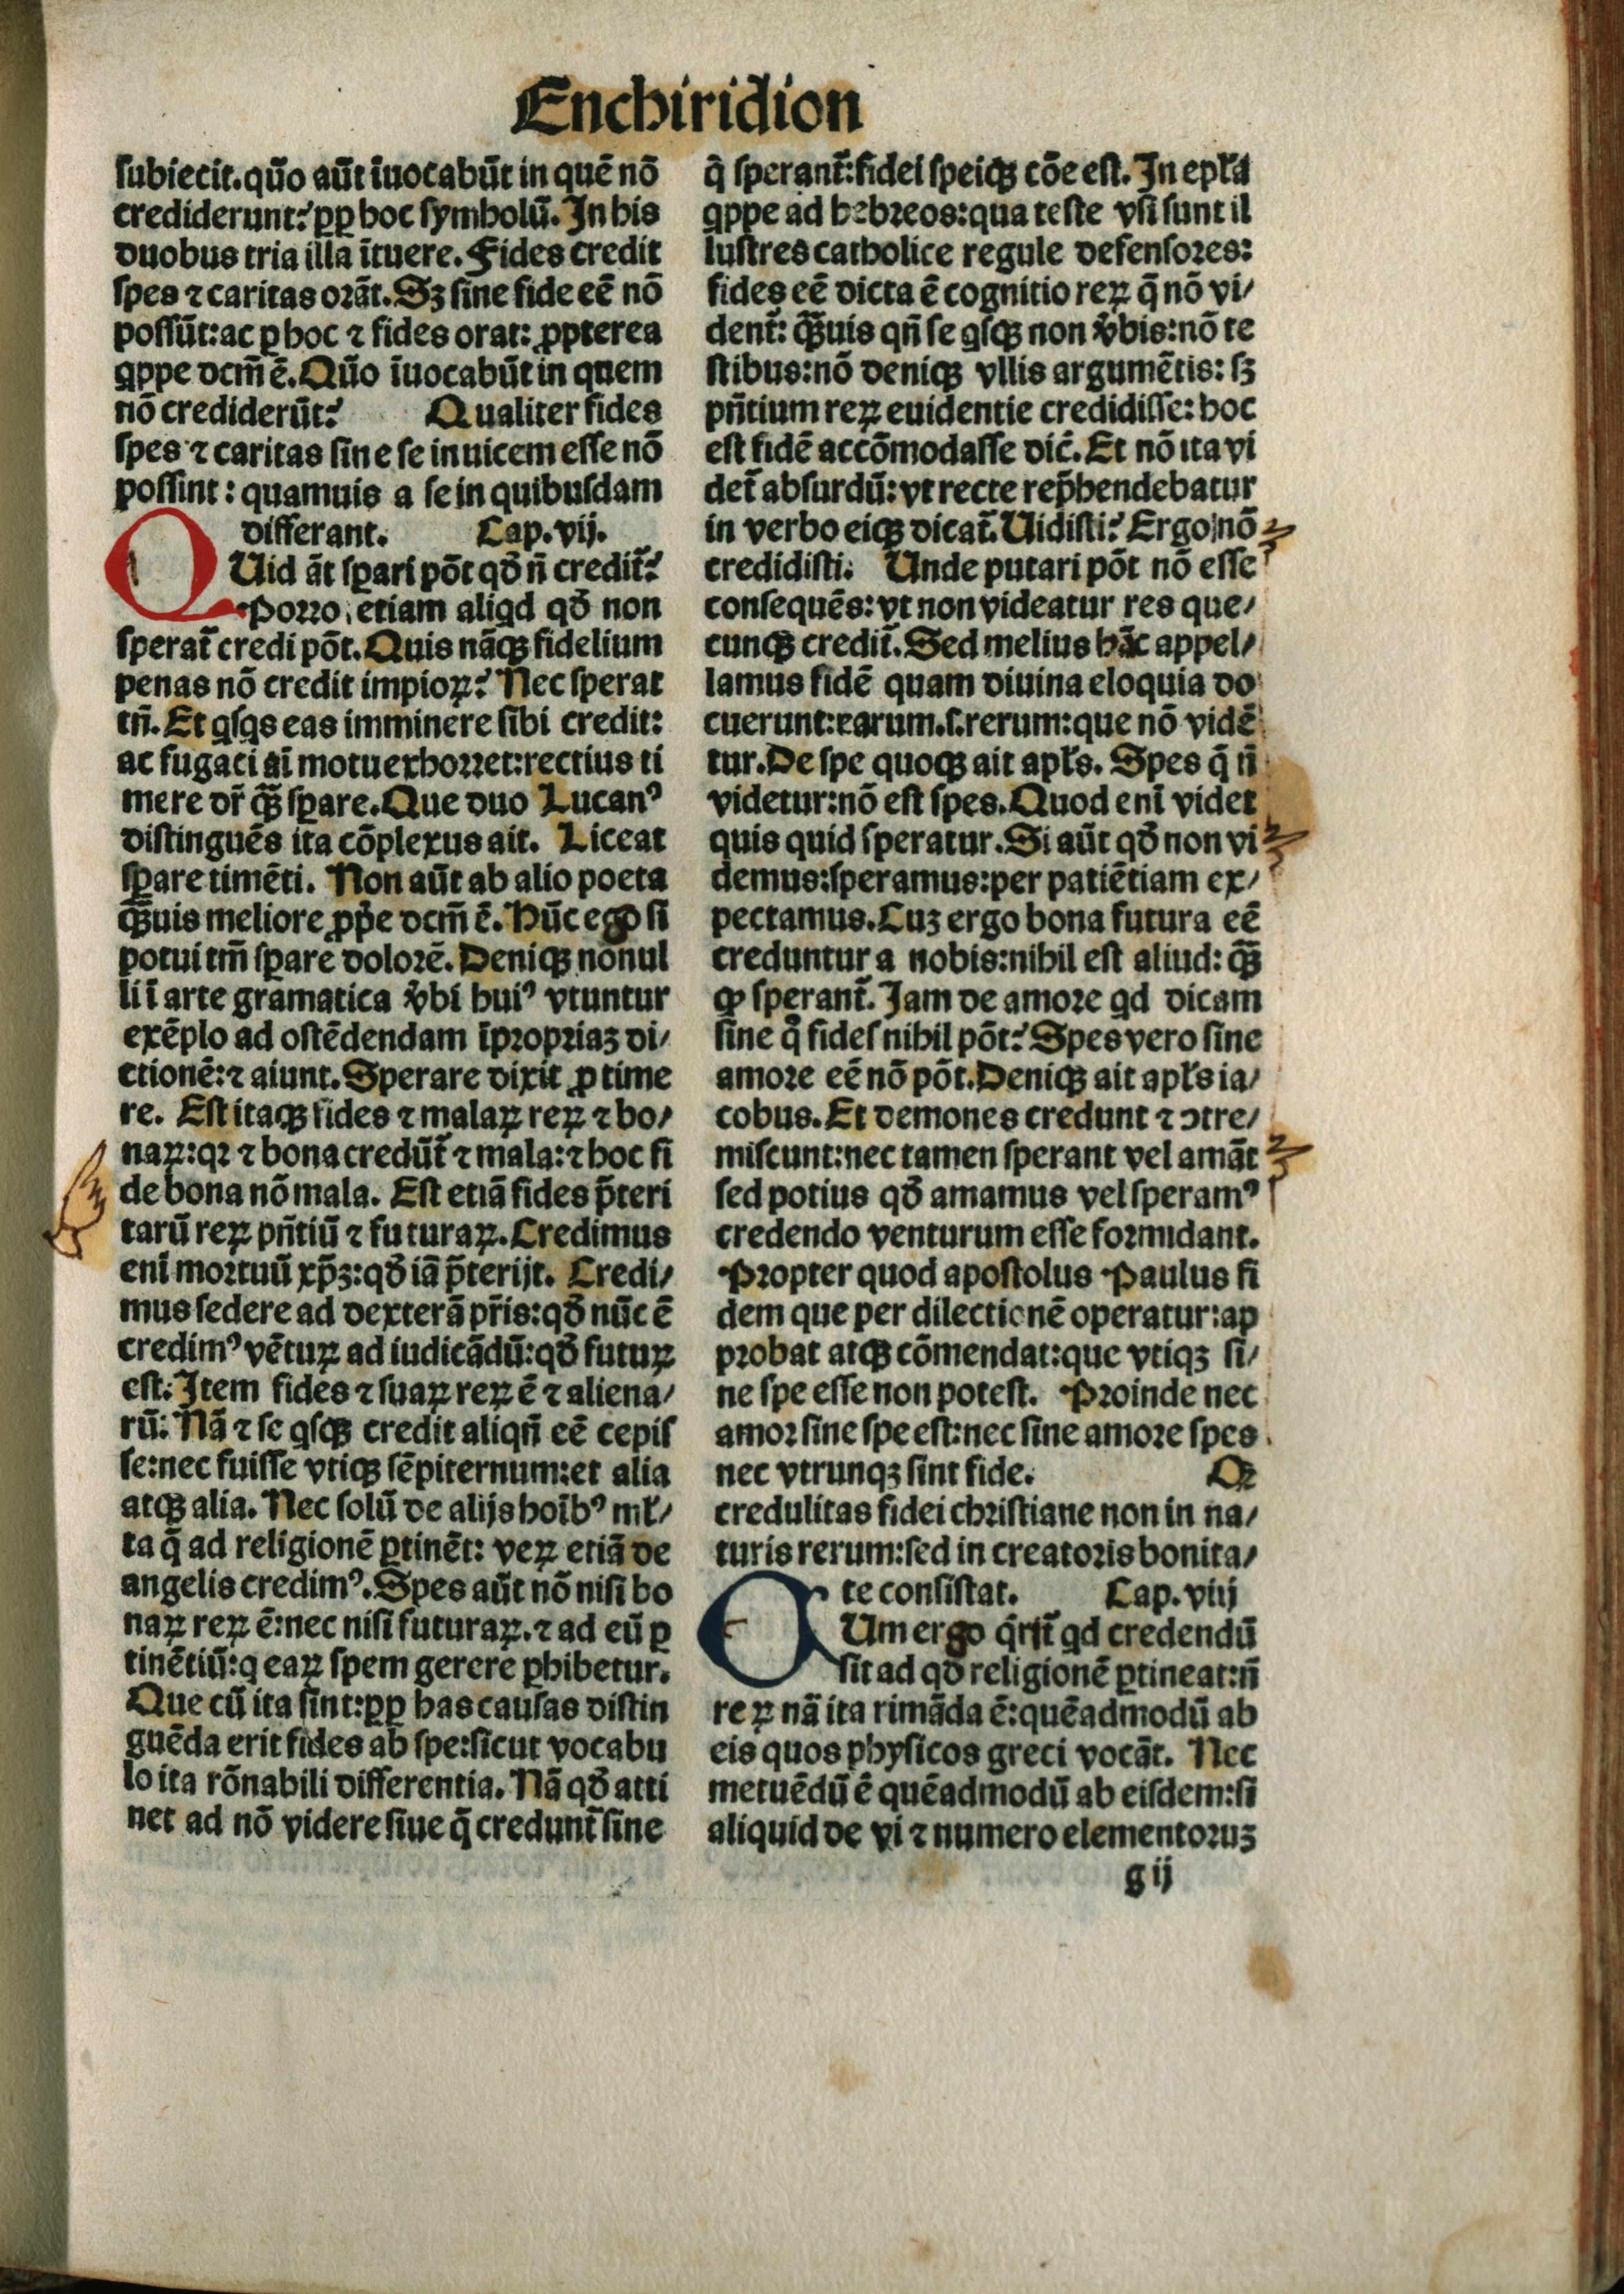 Enchiridion
subiecit. quō aūt īuocabūt in quē nō
crediderunt? ꝓꝑ hoc symbolū. In his
duobus tria illa ītuere. Fides credit
spes ⁊ caritas orāt. Sꝫ sine fide eē nō
possūt: ac ꝑ hoc ⁊ fides orat: ꝓpterea
qͥppe dcm̄ ē. Quō īuocabūt in quem
nō crediderūt? Qualiter fides
spes ⁊ caritas sine se inuicem esse nō
possint: quamuis a se in quibusdam
differant. Cap. vij.
QUid āt sꝑari pōt qđ n̄ credit̄?
Porro, etiam aliqͥd qđ non
sperat̄ credi pōt. Quis nāqꝫ fidelium
penas nō credit impioꝝ? Nec sperat
tn̄. Et qͥsqͥs eas imminere sibi credit:
ac fugaci aī motu exhorret: rectius ti
mere dr̄ qꝫ̄ sꝑare. Que duo Lucanꝰ
distinguēs ita cōplexus ait. Liceat
sꝑare timēti. Non aūt ab alio poeta
qꝫ̄uis meliore ꝓp̄e dcm̄ ē. Hūc ego si
potui tm̄ sꝑare dolorē. Deniqꝫ nonul
li ī arte gramatica v̄bi huiꝰ vtuntur
exēplo ad ostēdendam īpropriaꝫ di⸗
ctionē: ⁊ aiunt. Sperare dixit ꝓ time
re. Est itaqꝫ fides ⁊ malaꝝ reꝝ ⁊ bo⸗
naꝝ: qꝛ ⁊ bona credūt̄ ⁊ mala: ⁊ hoc fi
de bona nō mala. Est etiā fides p̄teri
tarū reꝝ pn̄tiū ⁊ futuraꝝ. Credimus
enī mortuū xp̄ꝫ: qđ iā p̄terijt. Credi⸗
mus sedere ad dexterā pr̄is: qđ nūc ē
credimꝰ vētuꝝ ad iudicādū: qđ futuꝝ
est. Item fides ⁊ suaꝝ reꝝ ē ⁊ aliena⸗
rū: Nā ⁊ se qͥsqꝫ credit aliqn̄ eē cepis
se: nec fuisse vtiqꝫ sēpiternum: et alia
atqꝫ alia. Nec solū de alijs hoībꝰ ml̄⸗
ta q̄ ad religionē ꝑtinēt: veꝝ etiā de
angelis credimꝰ. Spes aūt nō nisi bo
naꝝ reꝝ ē: nec nisi futuraꝝ. ⁊ ad eū ꝑ
tinētiū: qͥ eaꝝ spem gerere ꝑhibetur.
Que cū ita sint: ꝓꝑ has causas distin
guēda erit fides ab spe: sicut vocabu
lo ita rōnabili differentia. Nā qđ atti
net ad nō videre siue q̄ credunt̄ sine
q̄ sperant̄: fidei speiqꝫ cōe est. In epl̄a
qͥppe ad hebreos: qua teste vsi sunt il
lustres catholice regule defensores:
fides eē dicta ē cognitio reꝝ q̄ nō vi⸗
dent̄: qꝫ̄uis qn̄ se qͥsqꝫ non v̄bis: nō te
stibus: nō deniqꝫ vllis argumētis: sꝫ
pn̄tium reꝝ euidentie credidisse: hoc
est fidē accōmodasse dic̄. Et nō ita vi
det̄ absurdū: vt recte rep̄hendebatur
in verbo eiqꝫ dicat̄. Uidisti? Ergo nō
credidisti. Unde putari pōt nō esse
consequēs: vt non videatur res que⸗
cunqꝫ credit̄. Sed melius hāc appel⸗
lamus fidē quam diuina eloquia do
cuerunt: earum. s. rerum: que nō vidē
tur. De spe quoqꝫ ait apl̄s. Spes q̄ n̄
videtur: nō est spes. Quod enī videt
quis quid speratur. Si aūt qđ non vi
demus: speramus: per patiētiam ex⸗
pectamus. Cuꝫ ergo bona futura eē
creduntur a nobis: nihil est aliud: qꝫ̄
ꝙ sperant̄. Iam de amore qͥd dicam
sine q̊ fides nihil pōt? Spes vero sine
amore eē nō pōt. Deniqꝫ ait apl̄s ia⸗
cobus. Et demones credunt ⁊ ↄtre⸗
miscunt: nec tamen sperant vel amāt
sed potius qđ amamus vel speramꝰ
credendo venturum esse formidant.
Propter quod apostolus Paulus fi
dem que per dilectionē operatur: ap
probat atqꝫ cōmendat: que vtiqꝫ si⸗
ne spe esse non potest. Proinde nec
amor sine spe est: nec sine amore spes
nec vtrunqꝫ sint fide. Qꝛ
credulitas fidei christiane non in na⸗
turis rerum: sed in creatoris bonita⸗
te consistat. Cap. viij
CUm ergo q̄rit̄ qͥd credendū
sit ad qđ religionē ꝑtineat: n̄
reꝝ nā ita rimāda ē: quēadmodū ab
eis quos physicos greci vocāt. Nec
metuēdū ē quēadmodū ab eisdem: si
aliquid de vi ⁊ numero elementoruꝫ
g ij